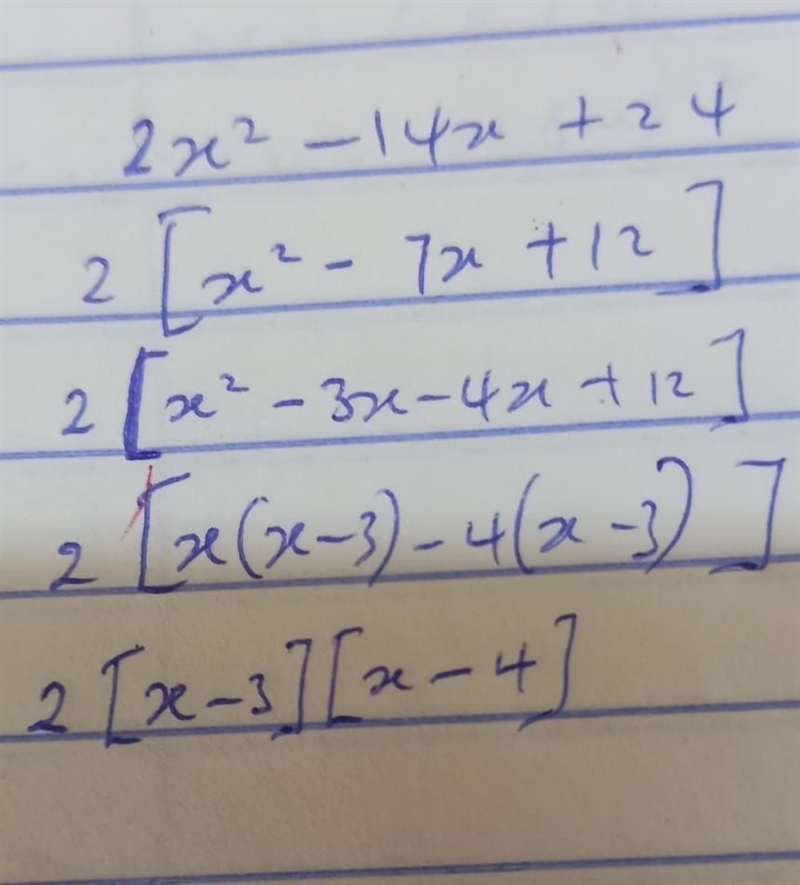 2x² - 14x + 24
2 [x² - 7x + 12]
2 [x² - 3x - 4x + 12]
2 [x(x-3) - 4(x-3)]
2 [x-3][x-4]